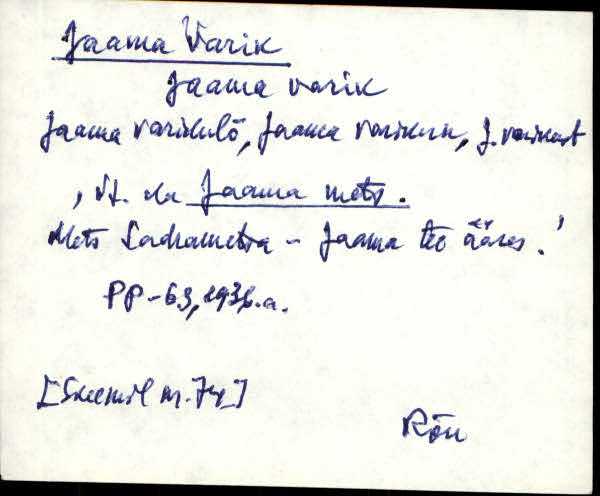 Jaama Varik
Jaama varik
Jaama varikulõ, Jaama varikun, J. varikust
, vt. ka Jaama mets.
Mets Sadrametsa - Jaama tee ääres.'
PP-63, 1936.a.
[Skeemil nr. 74]
Rõu